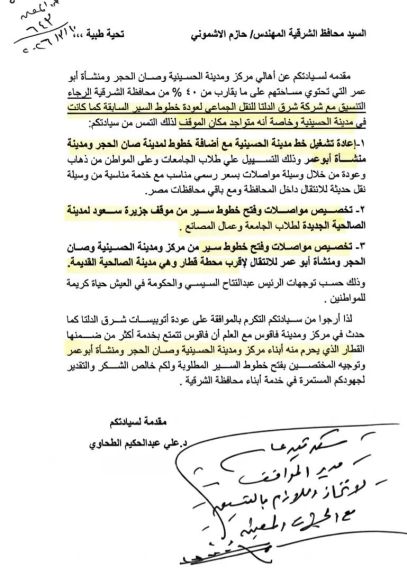 السيد محافظ الشرقية المهندس/ حازم الاشموني تحية طيبة ,,,
مقدمه لسيادتكم عن أهالي مركز ومدينة الحسينية وصان الحجر ومنشأة أبو
عمر التي تحتوي مساحتهم على ما يقارب من ٤٠ % من محافظة الشرقية الرجاء
التنسيق مع شركة شرق الدلتا للنقل الجماعي لعودة خطوط السير السابقة كما كانت
في مدينة الحسينية وخاصة أنه متواجد مكان الموقف لذلك التمس من سيادتكم:
١-إعادة تشغيل خط مدينة الحسينية مع اضافة خطوط لمدينة صان الحجر ومدينة
منشأة أبوعمر وذلك للتسهيل علي طلاب الجامعات وعلى المواطن من ذهاب
وعودة من خلال وسيلة مواصلات بسعر رسمي مناسب مع خدمة مناسبة من وسيلة
نقل حديثة للانتقال داخل المحافظة ومع باقي محافظات مصر.
٢- تخصيص مواصلات وفتح خطوط سير من موقف جزيرة سعود لمدينة
الصالحية الجديدة لطلاب الجامعة وعمال المصانع .
٣- تخصيص مواصلات وفتح خطوط سير من مركز ومدينة الحسينية وصان
الحجر ومنشأة أبو عمر للانتقال لإقرب محطة قطار وهي مدينة الصالحية القديمة.
وذلك حسب توجهات الرئيس عبدالفتاح السيسي والحكومة في العيش حياة كريمة
للمواطنين .
لذا أرجوا من سيادتكم التكرم بالموافقة على عودة أتوبيسات شرق الدلتا كما
حدث في مركز ومدينة فاقوس مع العلم أن فاقوس تتمتع بخدمة أكثر من ضمنها
القطار الذي يحرم منه أبناء مركز ومدينة الحسينية وصان الحجر ومنشأة أبوعمر
وتوجيه المختصين بفتح خطوط السير المطلوبة ولكم خالص الشكر والتقدير
لجهودكم المستمرة في خدمة أبناء محافظة الشرقية .
مقدمة لسيادتكم
د.علي عبدالحكيم الطحاوي
مدير المواقف
لاتخاذ اللازم بالتنسيق
مع الجهات المعنية